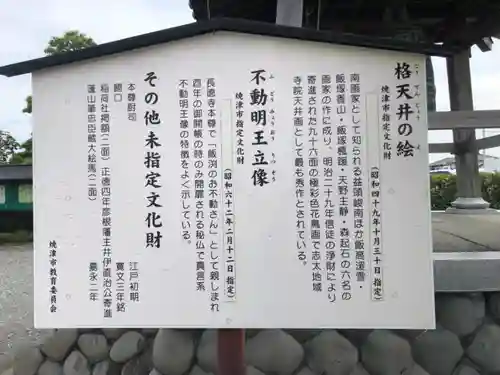 格天井の絵
ごう てん じょう え
焼津市指定文化財(昭和四十九年十月三十日指定)
南画家として知られる益頭峻南ほか飯高遜雪・
飯塚香山・飯塚楓蹊・天野主静・森起石の六名の
画家の作に成り、明治二十九年信徒の浄財により
寄進された九十六面の極彩色花鳥画で志太地域
寺院天井画として最も秀作とされている。
不動明王立像
ふ どう みょう おう りつ ぞう
焼津市指定文化財(昭和六十二年二月十二日指定)
長徳寺本尊で「飯渕のお不動さん」として親しまれ
酉年の御開帳の時のみ開扉される秘仏で真言系
不動明王の特徴をよく示している。
その他未指定文化財
本尊厨司 江戸初期
鰐口 寛文三年銘
稲荷社掲額(二面) 正徳四年彦根藩主井伊直治公寄進
蓬山筆忠臣蔵大絵馬(二面) 嘉永二年
焼津市教育委員会